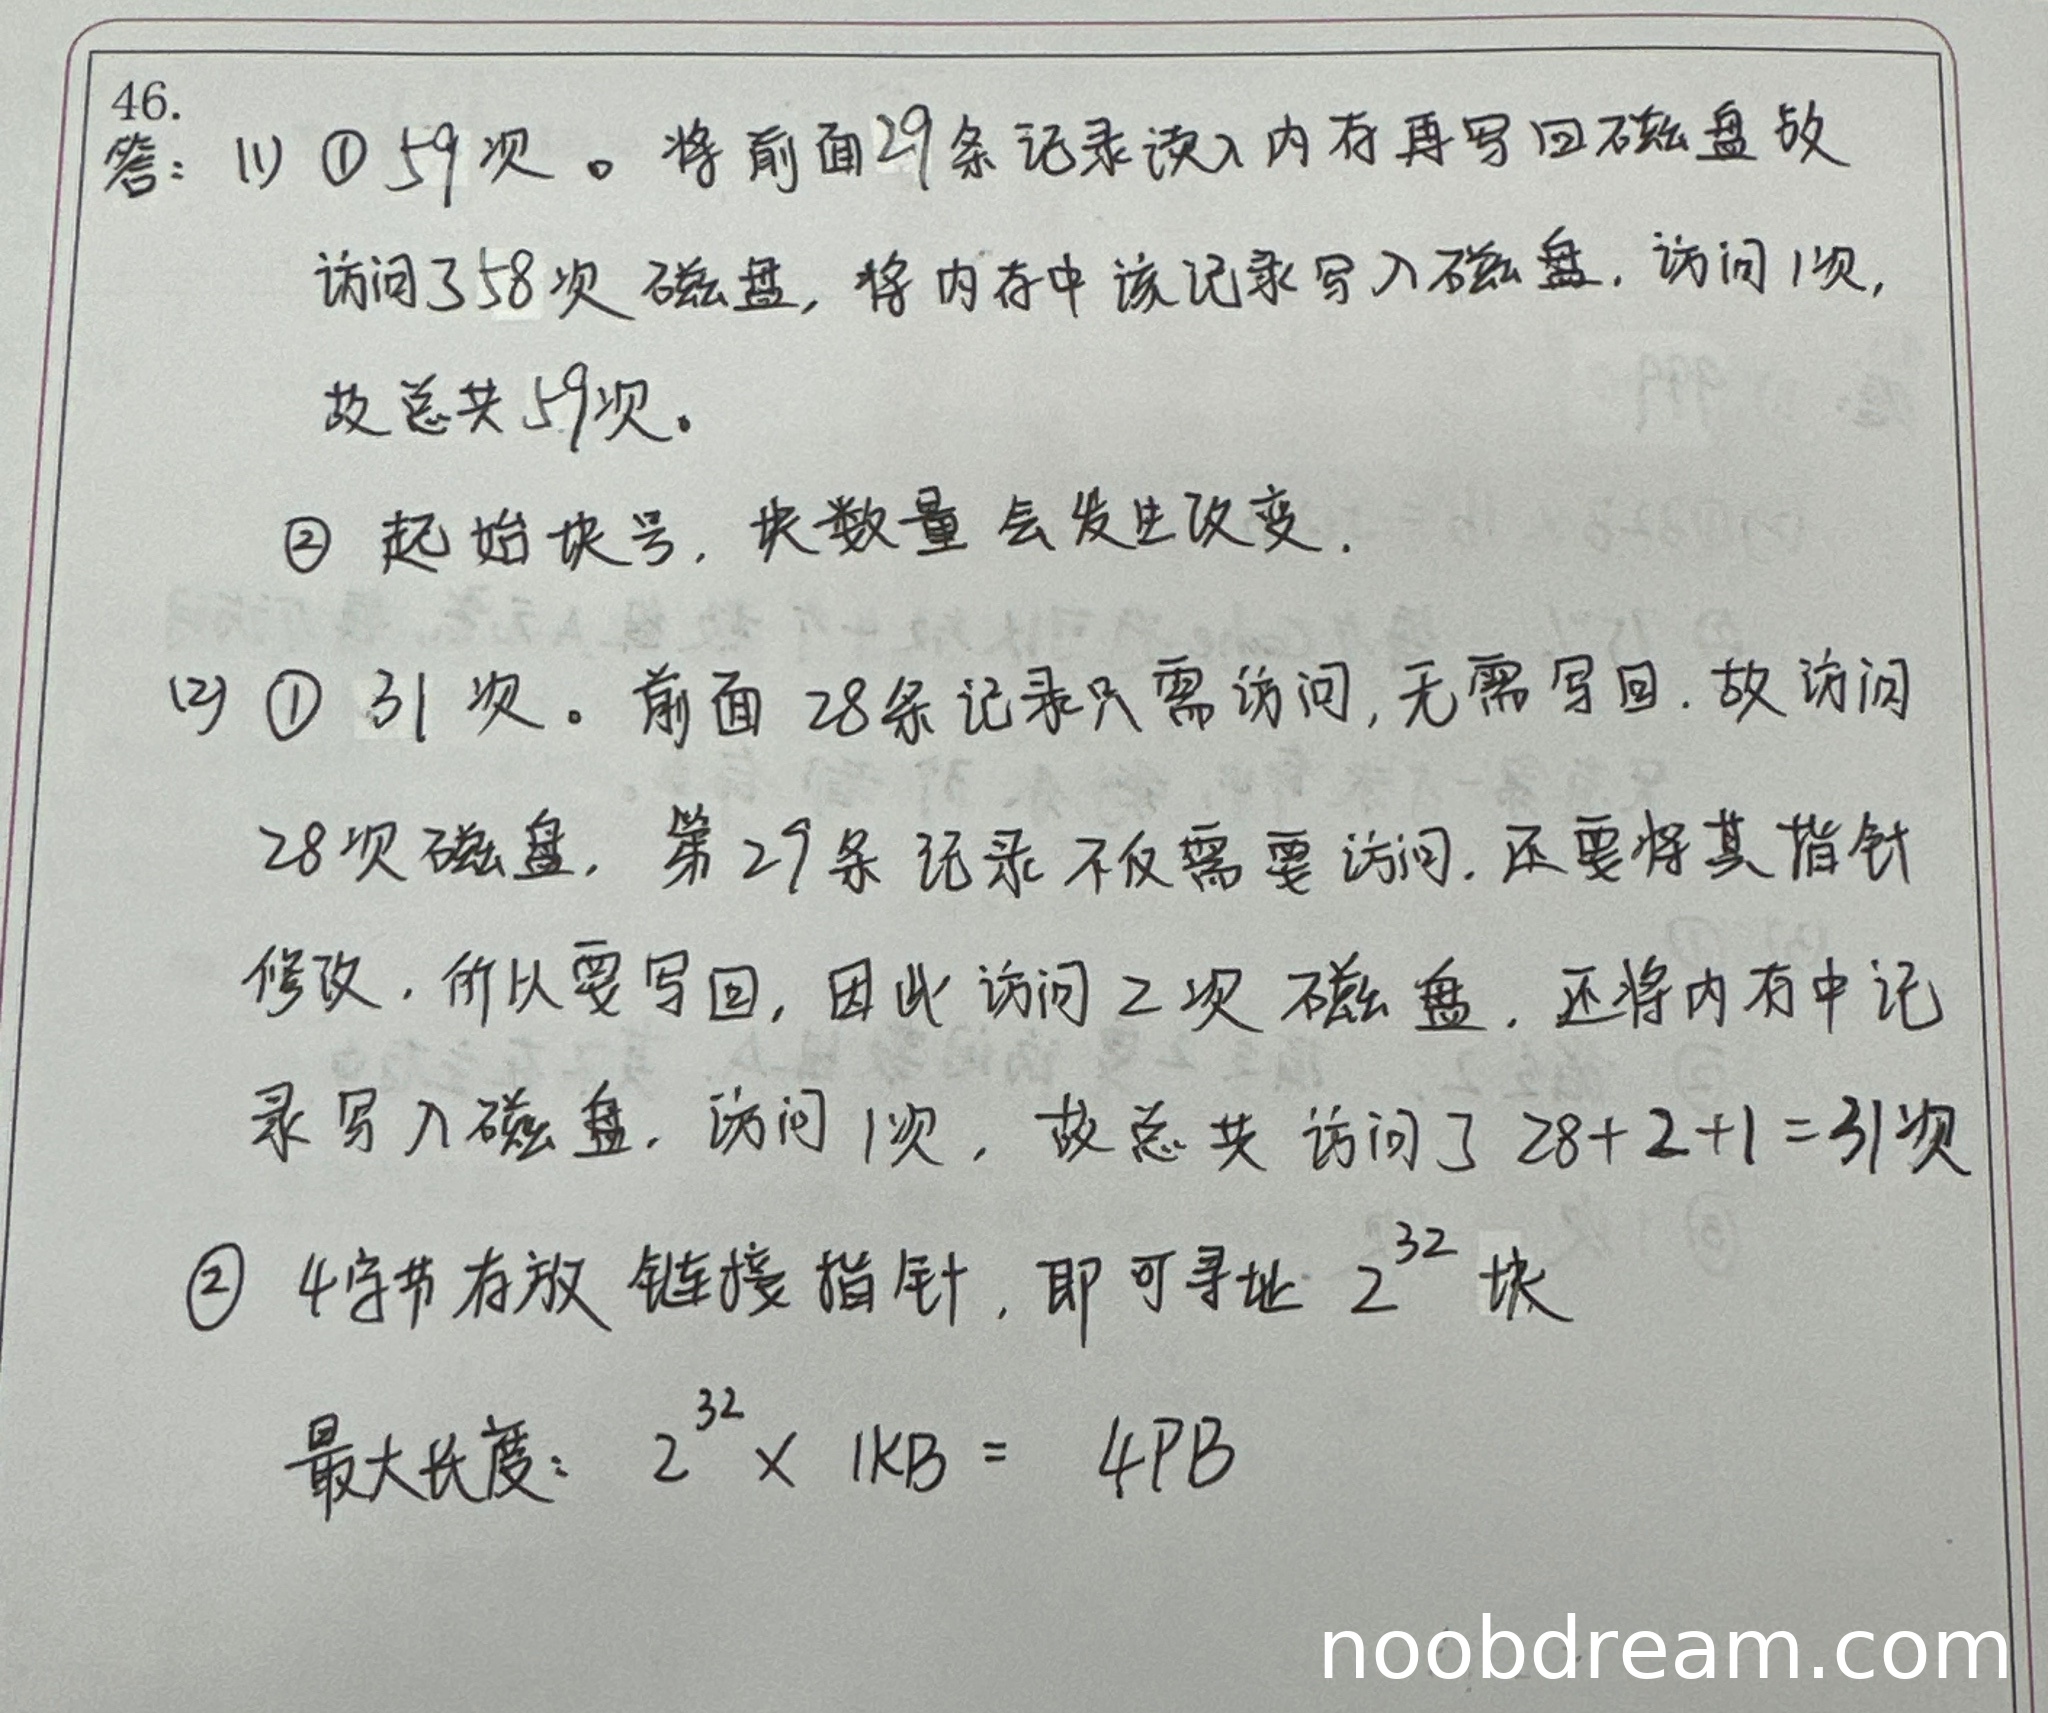 46.
答：(1) ① 59次。将前面29条记录读入内存再写回磁盘故
访问了58次磁盘，将内存中该记录写入磁盘，访问1次，
故总共59次。
② 起始块号，块数量会发生改变．
(2) ① 31次。前面28条记录只需访问，无需写回．故访问
28次磁盘．第29条记录不仅需要访问．还要将其指针
修改．所以要写回，因此访问2次磁盘．还将内存中记
录写入磁盘．访问1次，故总共访问了28+2+1=31次
② 4字节存放链接指针，即可寻址 2³² 块
最大长度：2³² × 1KB = 4PB
noobdream.com